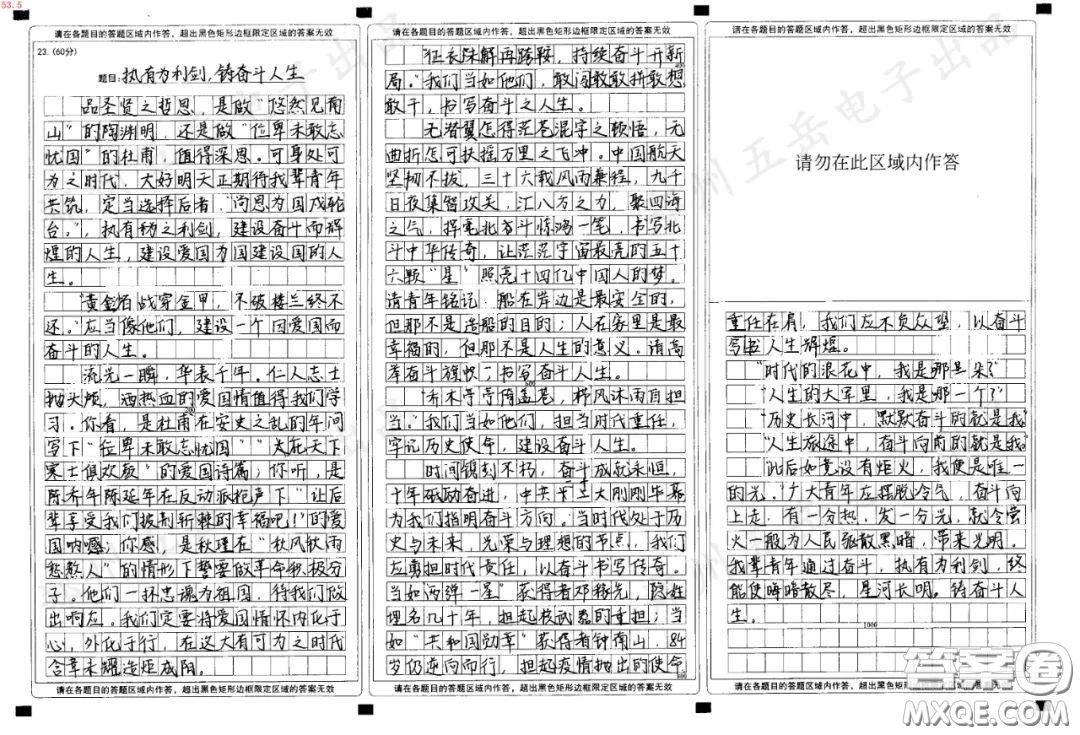 53.5
请在各题目的答题区域内作答，超出黑色矩形边框限定区域的答案无效
23.（60分）
题目：执有为利剑，铸奋斗人生
品圣贤之哲思，是做“悠然见南
山”的陶渊明，还是做“位卑未敢忘
忧国”的杜甫，值得深思。可身处可
为之时代，大好明天正期待我辈青年
共筑，定当选择后者，“尚思为国戍轮
台。”，执有为之利剑，建设奋斗而辉
煌的人生，建设爱国为国建设国的人
生。
“黄金百战穿金甲，不破楼兰终不
还。”应当像他们，建设一个因爱国而
奋斗的人生。
流光一瞬，华表千年。仁人志士
抛头颅，洒热血的爱国情值得我们学
习。你看，是杜甫在安史之乱的年间
写下“位卑未敢忘忧国”“大庇天下
200
寒士俱欢颜”的爱国诗篇；你听，是
陈乔年陈延年在反动派枪声下“让后
辈享受我们披荆斩棘的幸福吧！”的爱
国呐喊；你感，是秋瑾在“秋风秋雨
愁煞人”的情形下誓要做革命积极分
子。他们一抔忠魂为祖国，待我们做
出响应。我们定要将爱国情怀内化于
心，外化于行，在这大有可为之时代
含章未曜造炬成阳。
请在各题目的答题区域内作答，超出黑色矩形边框限定区域的答案无效
请在各题目的答题区域内作答，超出黑色矩形边框限定区域的答案无效
“征衣陈解再跨鞍，持续奋斗开新
400
局。”我们当如他们，敢闯敢敢拼敢想
敢干，书写奋斗之人生。
无潜翼怎得茫苍混宇之顿悟，无
曲折怎可扶摇万里之飞冲。中国航天
坚韧不拔，三十六载风雨兼程，九千
日夜集智攻关，汇八方之力，聚四海
之气，挥毫北奋斗惊鸿一笔，书写北
斗中华传奇，让茫茫宇宙最亮的五十
六颗“星”照亮十四亿中国人的梦。
请青年铭记：船在岸边是最安全的，
但那不是造船的目的；人在家里是最
幸福的，但那不是人生的意义。请高
举奋斗旗帜，书写奋斗人生。
600
“乔木亭亭倚盖苍，栉风沐雨自担
当。”我们当如他们，担当时代重任，
牢记历史使命，建设奋斗人生。
时间镌刻不朽，奋斗成就永恒，
十年砥砺奋进，中共二十大刚刚华幕
为我们指明奋斗方向。当时代处于历
史与未来，光荣与理想的节点，我们
应勇担时代责任，以奋斗书写传奇。
当如“两弹一星”获得者邓稼先，隐姓
埋名几十年，担起核武器的重担；当
如“共和国勋章”获得者钟南山，84
岁仍逆向而行，担起疫情抛出的使命
800
请在各题目的答题区域内作答，超出黑色矩形边框限定区域的答案无效
请在各题目的答题区域内作答，超出黑色矩形边框限定区域的答案无效
请勿在此区域内作答
重任在肩，我们应不负众望，以奋斗
写书人生辉煌。
“时代的浪花中，我是哪里朵？”
“人生的大军里，我是哪一个？”
“历史长河中，默默奋斗的就是我”
“人生旅途中，奋斗向前的就是我”
“此后如竟没有炬火，我便是唯一
的光。”广大青年应摆脱冷气，奋斗向
上走，有一分热，发一分光，就令萤
火一般为人民驱散黑暗，带来光明。
我辈青年通过奋斗，执有为利剑，终
能使晦暗散尽，星河长明。铸奋斗人
生。
1000
请在各题目的答题区域内作答，超出黑色矩形边框限定区域的答案无效
州五岳电子出品
答案卷
MXQE.COM